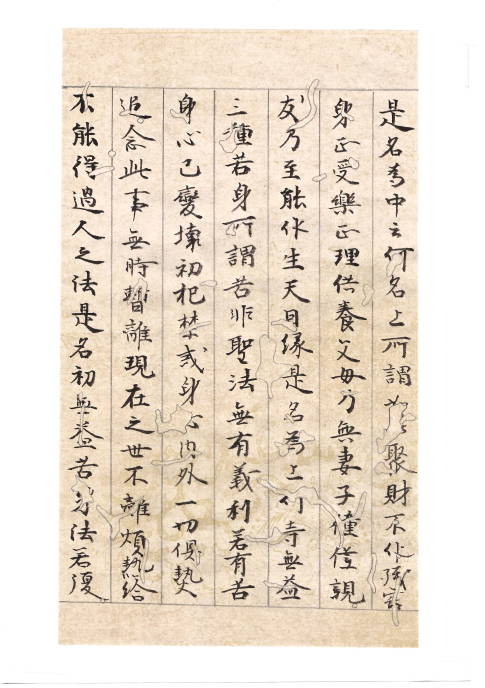 是名為中云何名上所謂聚財不作殘害
身正受樂正理供養父母乃無妻子僮僕親
友乃至能作生天因緣是名為上何等無益
三種若身所謂苦非聖法無有義利若有苦
身心已變壞初犯禁戒身心內外一切俱熱
追念此事無時暫離現在之世不離煩熱給
不能得過人之法是名初無益苦方法若復